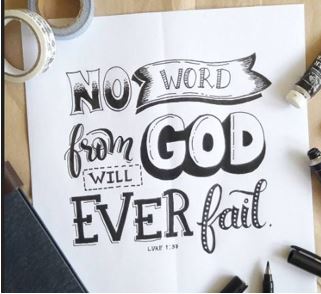 NO WORD
from GOD
WILL
EVER fail.
LUKE 1:37